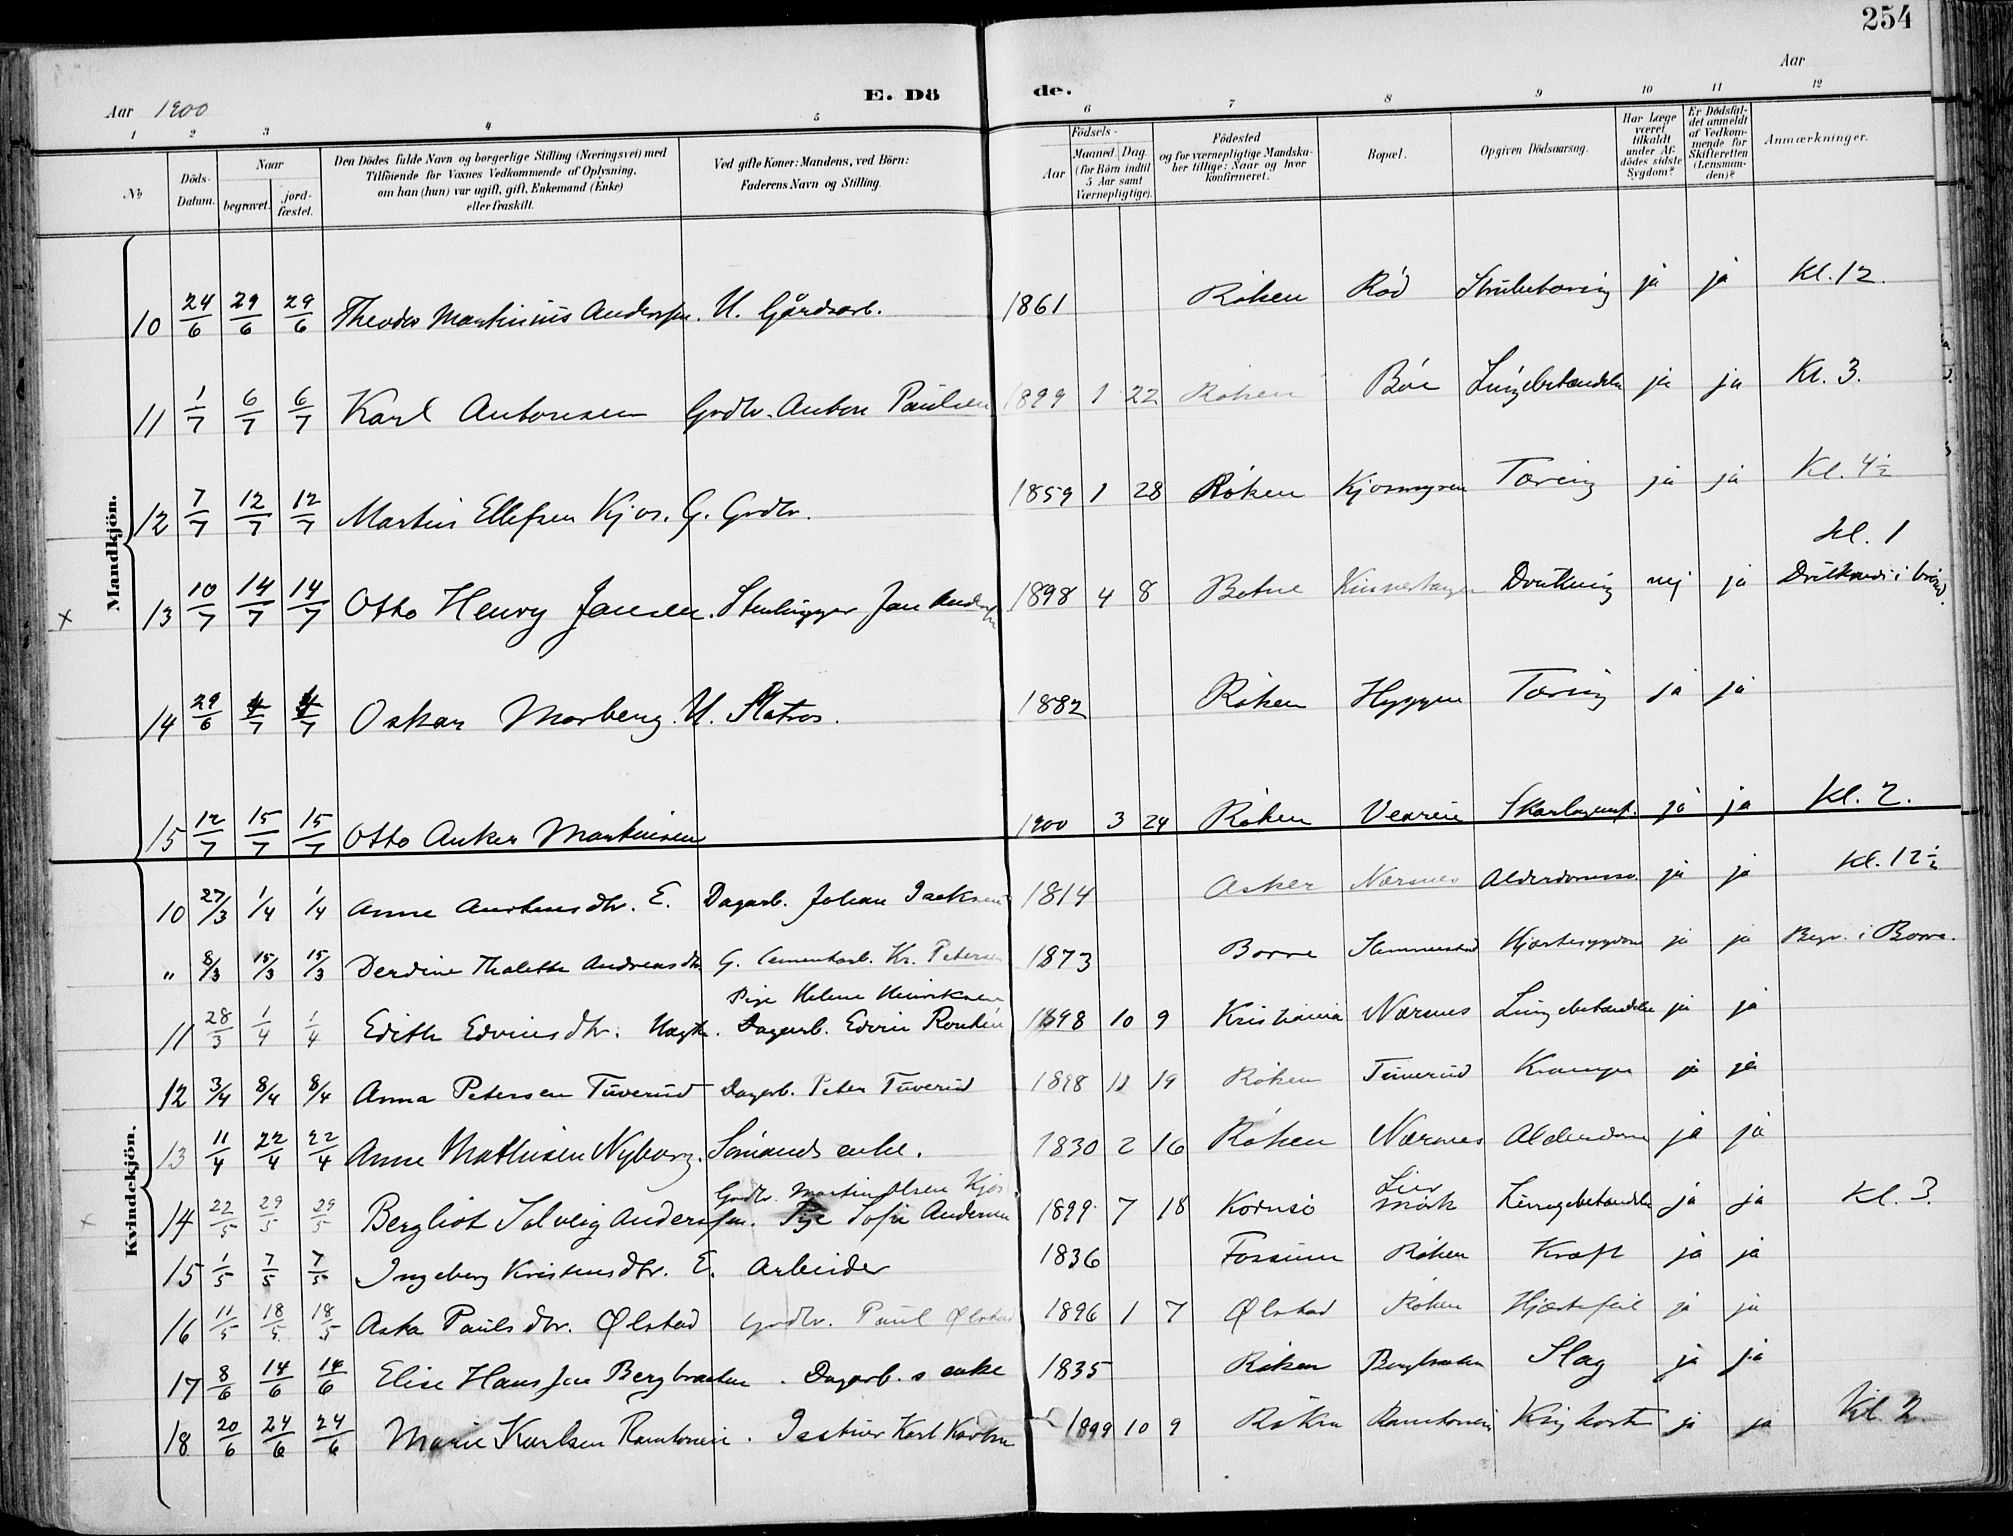 254
Aar 1900
E. Dö
de.
Aar
1 2 3 4 5 6 7 8 9 10 11 12
No
Döds-Datum.
Naar
begravet.
jord-fæstet.
Den Dödes fulde Navn og borgerlige Stilling (Næringsvei) med
Tilföiende for Voxnes Vedkommende af Oplysning,
om han (hun) var ugift, gift, Enkemand (Enke)
eller fraskilt.
Ved gifte Koner: Mandens, ved Börn:
Faderens Navn og Stilling.
Födsels-
Aar
Maaned. Dag.
(for Börn indtil
5 Aar samt
Værnepligtige).
Födested
og for værnepligtige Mandska-
ber tillige: Naar og hvor
konfirmeret.
Bopæl.
Opgiven Dödsaarsag.
Har Læge
været
tilkaldt
under Af-
dödes sidste
Sygdom?
Er Dödsfal-
det anmeldt
af Vedkom-
mende for
Skifteretten
(Lensman-
den)?
Anmærkninger.
Mandkjön.
10 24/6 29/6 29/6 Theodor Martinius Andersen. U. Gårdsarb. 1861 Røken Rød Strubetæring ja ja Kl. 12.
11 1/7 6/7 6/7 Karl Antonsen Grdbr. Anton Paulsen 1899 1 22 Røken Bøe Lungebetændelse ja ja Kl. 3.
12 7/7 12/7 12/7 Martin Ellefsen Kjos. G. Grdbr. 1859 1 28 Røken Kjosmyren Tæring ja ja Kl. 4½
Kl. 1
x 13 10/7 14/7 14/7 Otto Henry Jansen. Stenhugger Jan Andersen 1898 4 8 Botne Drukning nej ja
14 29/6 4/7 4/7 Oskar Morberg U. Matros. 1882 Røken Hyggen Tæring ja ja
15 12/7 15/7 15/7 Otto Anker Martinsen 1900 3 24 Røken Vearen Skarlagensf. ja ja Kl. 2.
Kvindekjön.
10 27/3 1/4 1/4 Anne Austensdtr. E. Dagarb. Johan Isaksen 1814 Asker Nærsnes Alderdomss. ja ja Kl. 12½
" 8/3 15/3 15/3 Derdine Thalette Andreasdtr G. Cementarb. Kr. Petersen 1873 Borre Slemmestad Hjertesygdom ja ja Begr. i Borre.
Pige Helene Henriksen
11 28/3 1/4 1/4 Edith Edvinsdtr. Uægte. Dagarb. Edvin 1898 10 9 Kristiania Nærsnes Lungebetændelse ja ja
12 3/4 8/4 8/4 Anna Petersen Tuverud Dagarb. Peter Tuverud 1898 11 19 Røken Tuverud Kramper ja ja
13 11/4 22/4 22/4 Anne Mathisen Nyborg. Sømands enke. 1830 2 16 Røken Nærsnes Alderdom ja ja
Grdbr. Martin Olsen Kjos
x 14 22/5 29/5 29/5 Bergliot Solveig Andersen. Pige Sofie Andersen 1899 7 18 Kornsø Lier Mörk Lungebetændelse ja ja Kl. 3.
15 1/5 7/5 7/5 Ingeborg Kristensdtr. E. Arbeider 1836 Fossum Røken Kræft ja ja
16 11/5 18/5 18/5 Asta Paulsdtr. Ølstad Grdbr. Paul Ølstad 1896 1 7 Ølstad Røken Hjertefeil ja ja
17 8/6 14/6 14/6 Elise Hansen Bergbraaten. Dagarb.s enke 1835 Røken Bergbraaten Slag ja ja
18 20/6 24/6 24/6 Marie Karlsen Ramtonen. Karl 1899 10 9 Røken Ramtonen Kighoste ja ja Kl. 2.